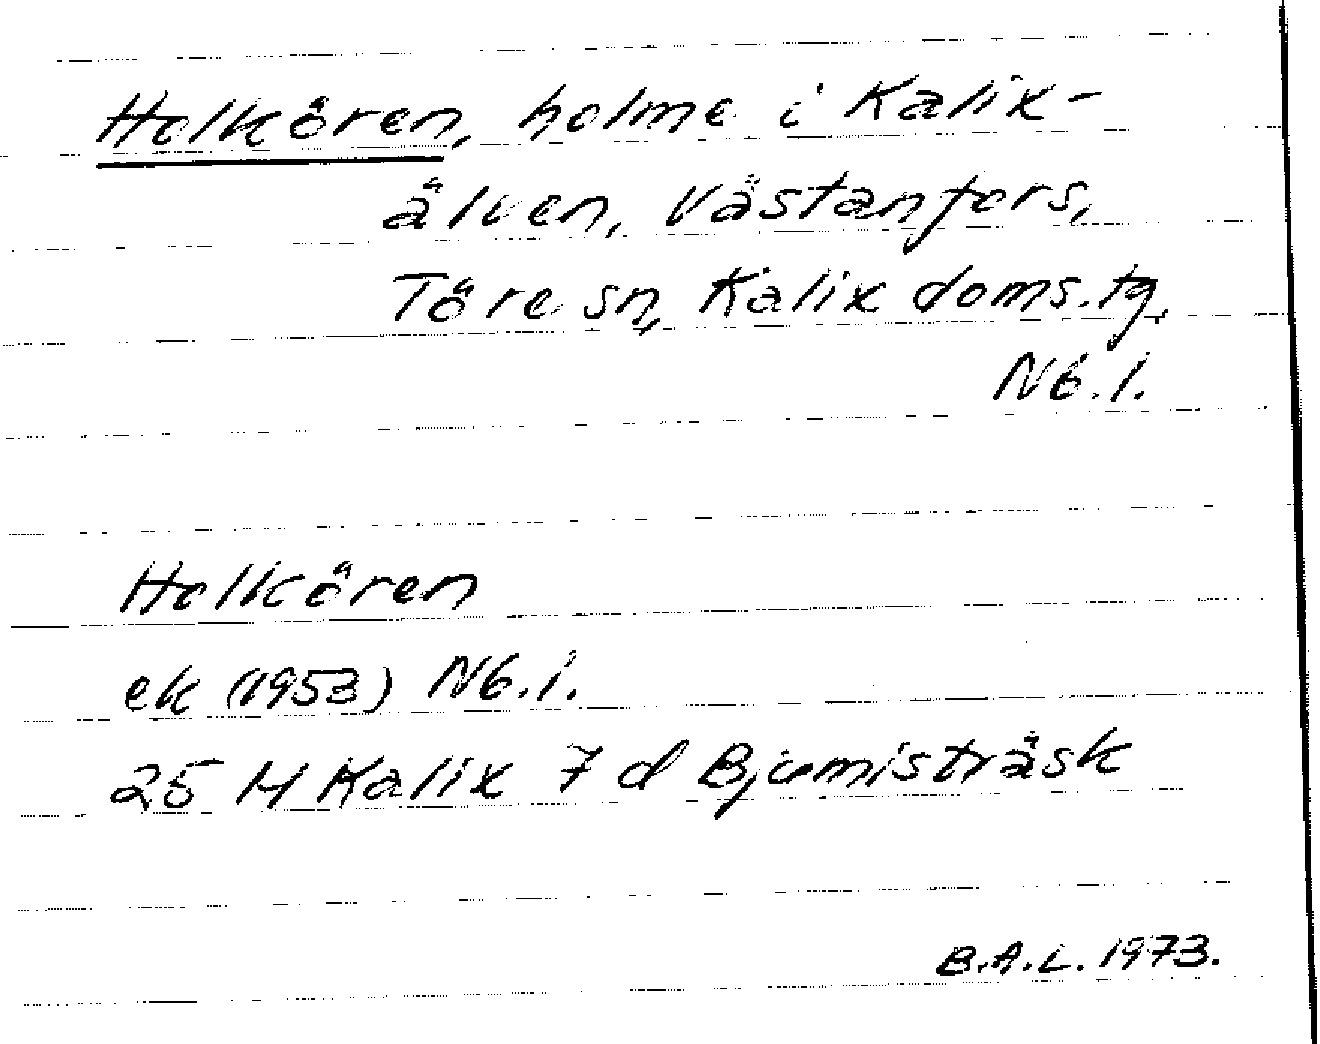 Holkören, holme i Kalix-
älven, Västanfors,
Töre sn, Kalix doms.tg,
Nb.l.
Holkören
ek (1953) Nb.l.
25 M Kalix 7 d Bjumisträsk
B.A.L. 1973.